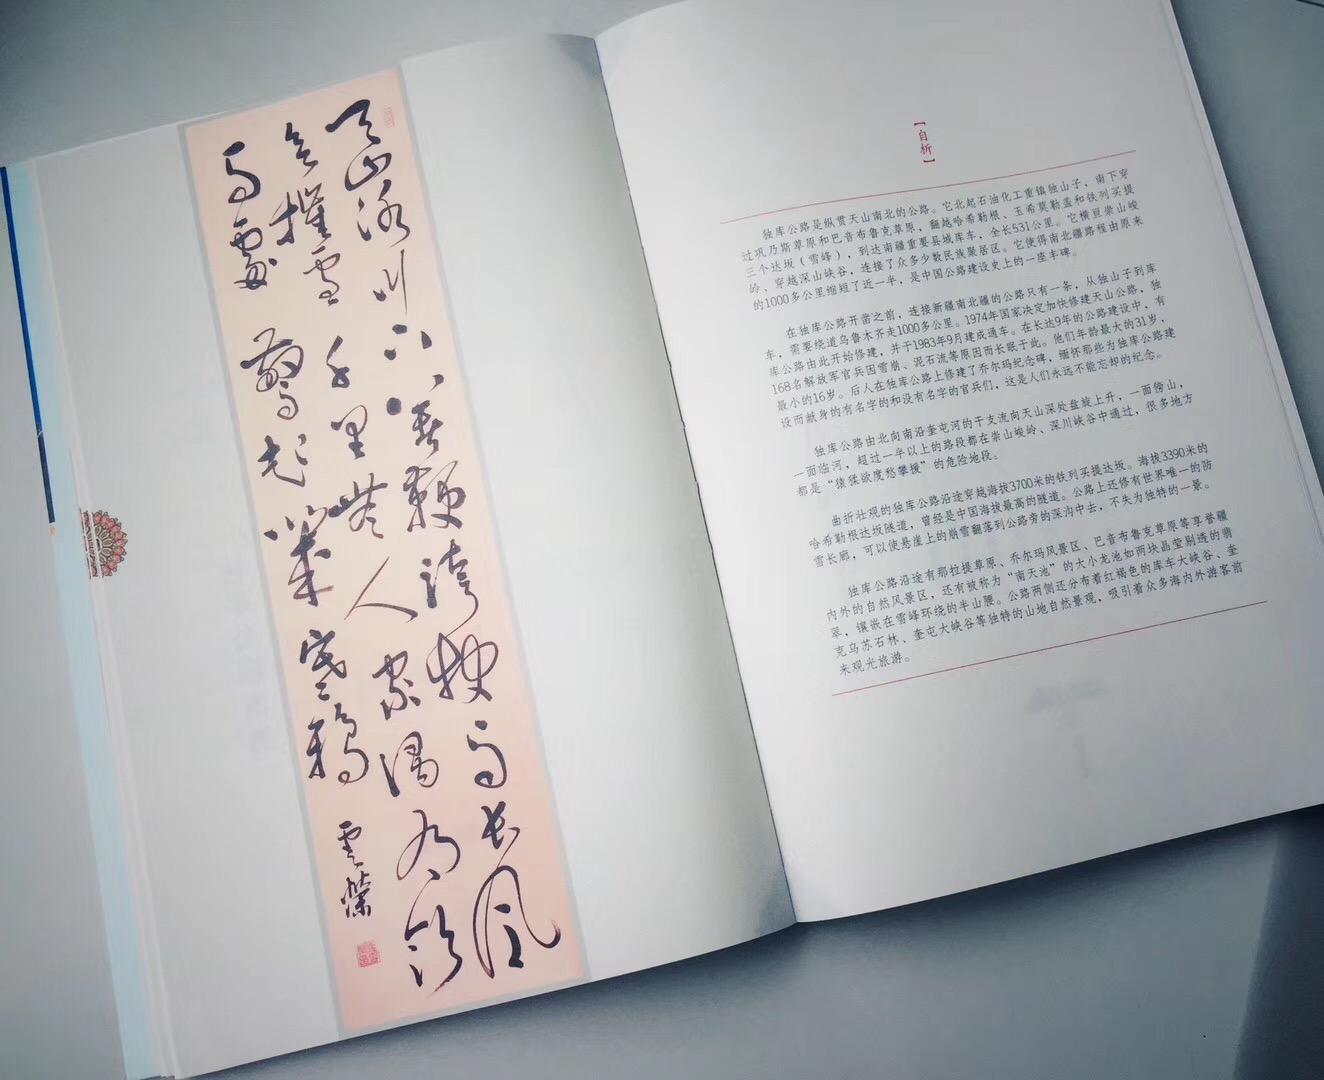 天山 川 长风
雪千里无人家
马处惊起 寒鸦
云
【自析】
独库公路是纵贯天山南北的公路。它北起石油化工重镇独山子，南下穿
过巩乃斯草原和巴音布鲁克草原，翻越哈希勒根、玉希莫勒盖和铁列买提
三个达坂（雪峰），到达南疆重要县域库车，全长531公里。它横亘崇山峻
岭、穿越深山峡谷，连接了众多少数民族聚居区。它使得南北疆路程由原来
的1000多公里缩短了近一半，是中国公路建设史上的一座丰碑。
在独库公路开凿之前，连接新疆南北疆的公路只有一条，从独山子到库
车，需要绕道乌鲁木齐走1000多公里。1974年国家决定加快修建天山公路，独
库公路由此开始修建，并于1983年9月建成通车。在长达9年的公路建设中，有
168名解放军官兵因雪崩、泥石流等原因而长眠于此。他们年龄最大的31岁，
最小的16岁。后人在独库公路上修建了乔尔玛纪念碑，缅怀那些为独库公路建
设而献身的有名字的和没有名字的官兵们，这是人们永远不能忘却的纪念。
独库公路由北向南沿奎屯河的干支流向天山深处盘旋上升，一面傍山，
一面临河，超过一半以上的路段都在崇山峻岭、深川峡谷中通过，很多地方
都是“猿猱欲度愁攀援”的危险地段。
曲折壮观的独库公路沿途穿越海拔3700米的铁列买提达坂。海拔3390米的
哈希勒根达坂隧道，曾经是中国海拔最高的隧道。公路上还修有世界唯一的防
雪长廊，可以使悬崖上的崩雪翻落到公路旁的深沟中去，不失为独特的一景。
独库公路沿途有那拉提草原、乔尔玛风景区、巴音布鲁克草原等享誉疆
内外的自然风景区，还有被称为“南天池”的大小龙池如两块晶莹剔透的翡
翠，镶嵌在雪峰环绕的半山腰。公路两侧还分布着红褐色的库车大峡谷、奎
克乌苏石林、奎屯大峡谷等独特的山地自然景观，吸引着众多海内外游客前
来观光旅游。